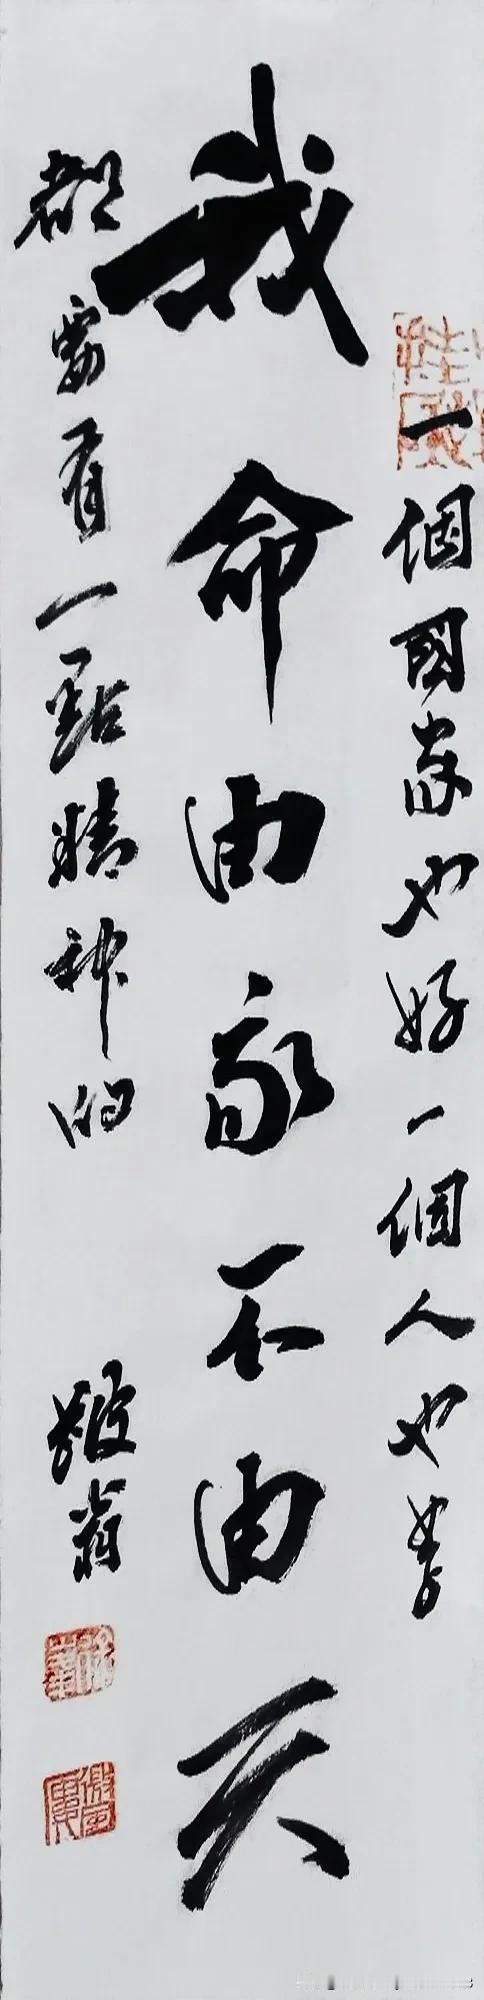 一個國家也好一個人也好
我命由我不由天
都要有一點精神的
翁